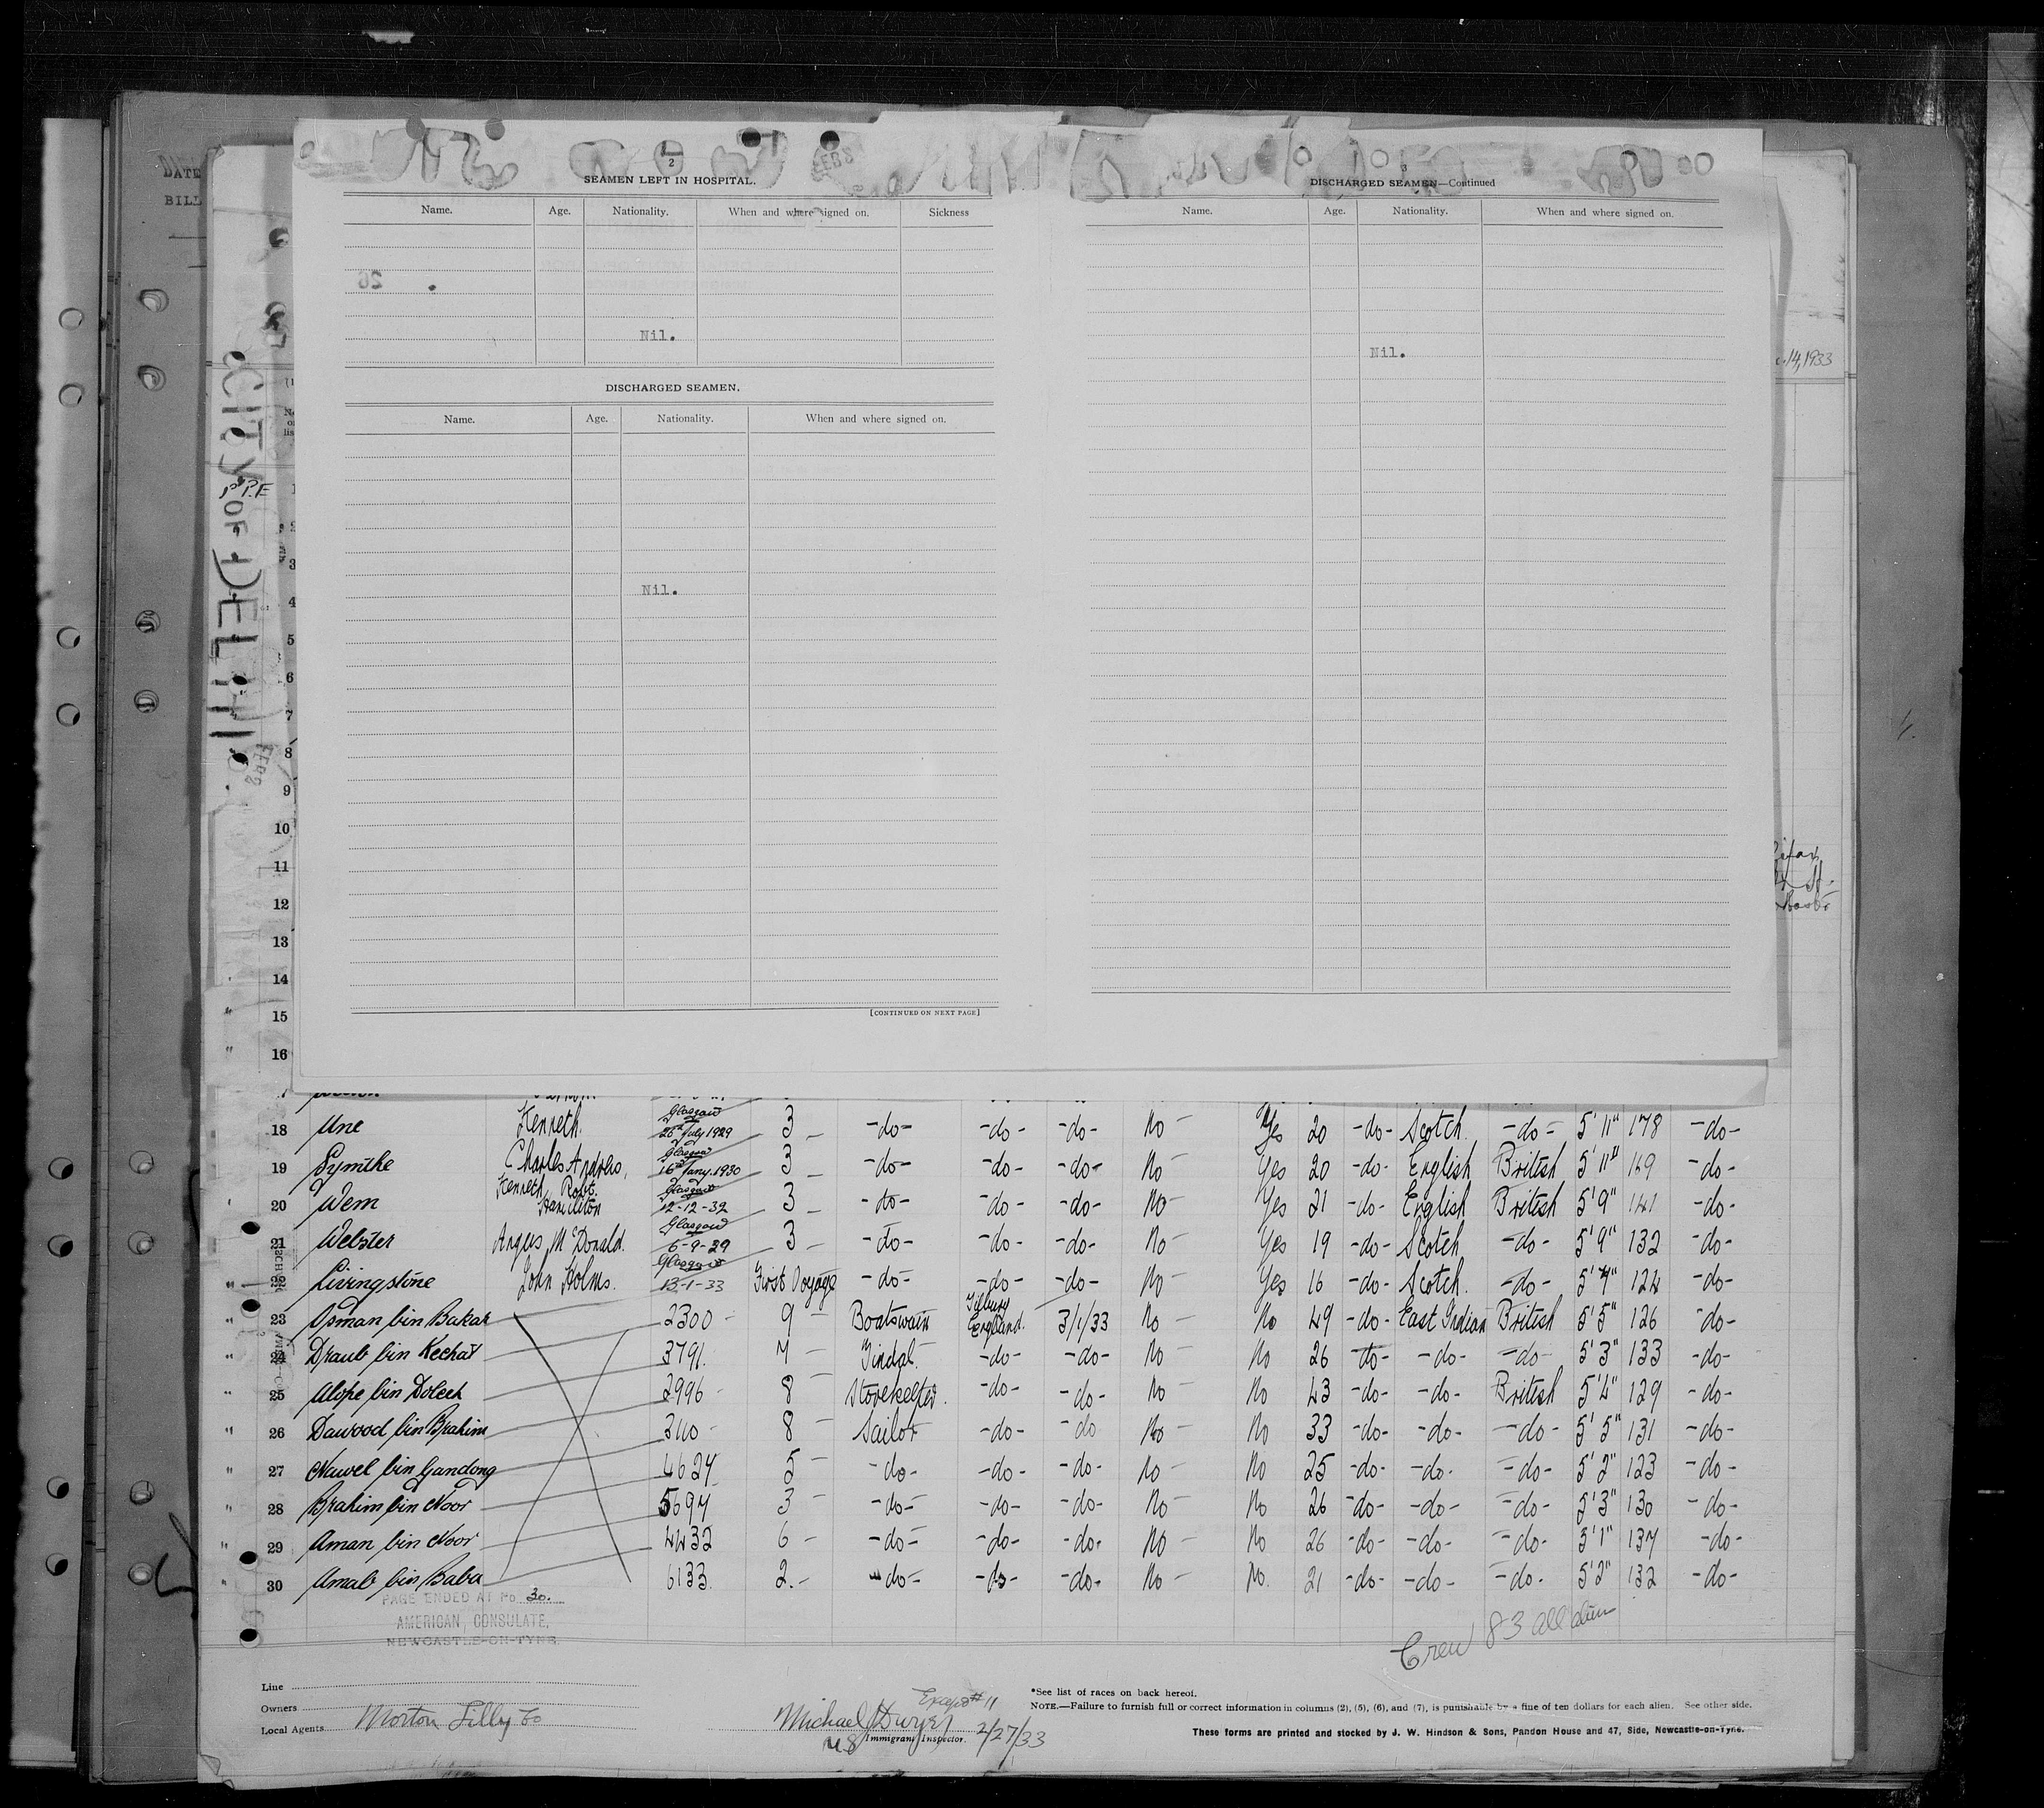 DATE
BILL
CITY OF DELHI.
P.P.E
FEB 2
2
SEAMEN LEFT IN HOSPITAL.
Name. Age. Nationality. When and where signed on. Sickness
26
Nil.
DISCHARGED SEAMEN.
Name. Age. Nationality. When and where signed on.
Nil.
[CONTINUED ON NEXT PAGE]
3
DISCHARGED SEAMEN—Continued
Name. Age. Nationality. When and where signed on.
Nil.
14, 1933
1
2
3
4
5
6
7
8
9
10
11
12
13
14
15
16
18 Une Kenneth. Glasgow 26th July 1929 3 - -do- -do- -do- No - Yes 20 -do- Scotch. -do- 5'11" 178 -do-
19 Symthe Charles Andrew, Glasgow 16th Jany. 1930 3 - -do- -do- -do- No - Yes 20 -do- English British 5'11" 169 -do-
20 Wem Kenneth Robt. Hamilton Glasgow 12-12-32 3 - -do- -do- -do- No - Yes 21 -do- English British 5'9" 141 -do-
21 Webster Angus McDonald. Glasgow 6-9-29 3 - -do- -do- -do- No - Yes 19 -do- Scotch -do- 5'9" 132 -do-
22 Livingstone John Holms. Glasgow 13-1-33 First Voyage -do- -do- -do- No - Yes 16 -do- Scotch. -do- 5'7" 124 -do-
23 Osman bin Bakar 2300 - 9 - Boatswain Tilbury England. 3/1/33 No - No 49 -do- East Indian British 5'5" 126 -do-
24 Draub bin Kechat 3791. 7 - Tindal. -do- -do- No - No 26 -do- -do- -do- 5'3" 133 -do-
25 Alope bin Dolech 2996 - 8 - Storekeeper. -do- -do- No - No 43 -do- -do- British 5'4" 129 -do-
26 Dawood bin Brahim 3110 - 8 - Sailor -do- -do No - No 33 -do- -do- -do- 5'5" 131 -do-
27 Nawel bin Gandong 4627 5 - -do- -do- -do- No - No 25 -do- -do- -do- 5'2" 123 -do-
28 Brahim bin Noor 5697 3 - -do- -do- -do- No - No 26 -do- -do- -do- 5'3" 130 -do-
29 Aman bin Noor 4432 6 - -do- -do- -do- No - No 26 -do- -do- -do- 5'1" 137 -do-
30 Amab bin Baba 6133. 2. - -do- -do- -do- No - No. 21 -do- -do- -do- 5'2" 132 -do-
PAGE ENDED AT No 30.
AMERICAN CONSULATE,
NEWCASTLE-ON-TYNE.
Crew 83 all alien
Line
Owners
Local Agents Morton Lilly Co
Except #11
Michael J Dwyer 2/27/33
Immigrant Inspector.
*See list of races on back hereof.
NOTE.—Failure to furnish full or correct information in columns (2), (5), (6), and (7), is punishable by a fine of ten dollars for each alien. See other side.
These forms are printed and stocked by J. W. Hindson & Sons, Pandon House and 47, Side, Newcastle-on-Tyne.